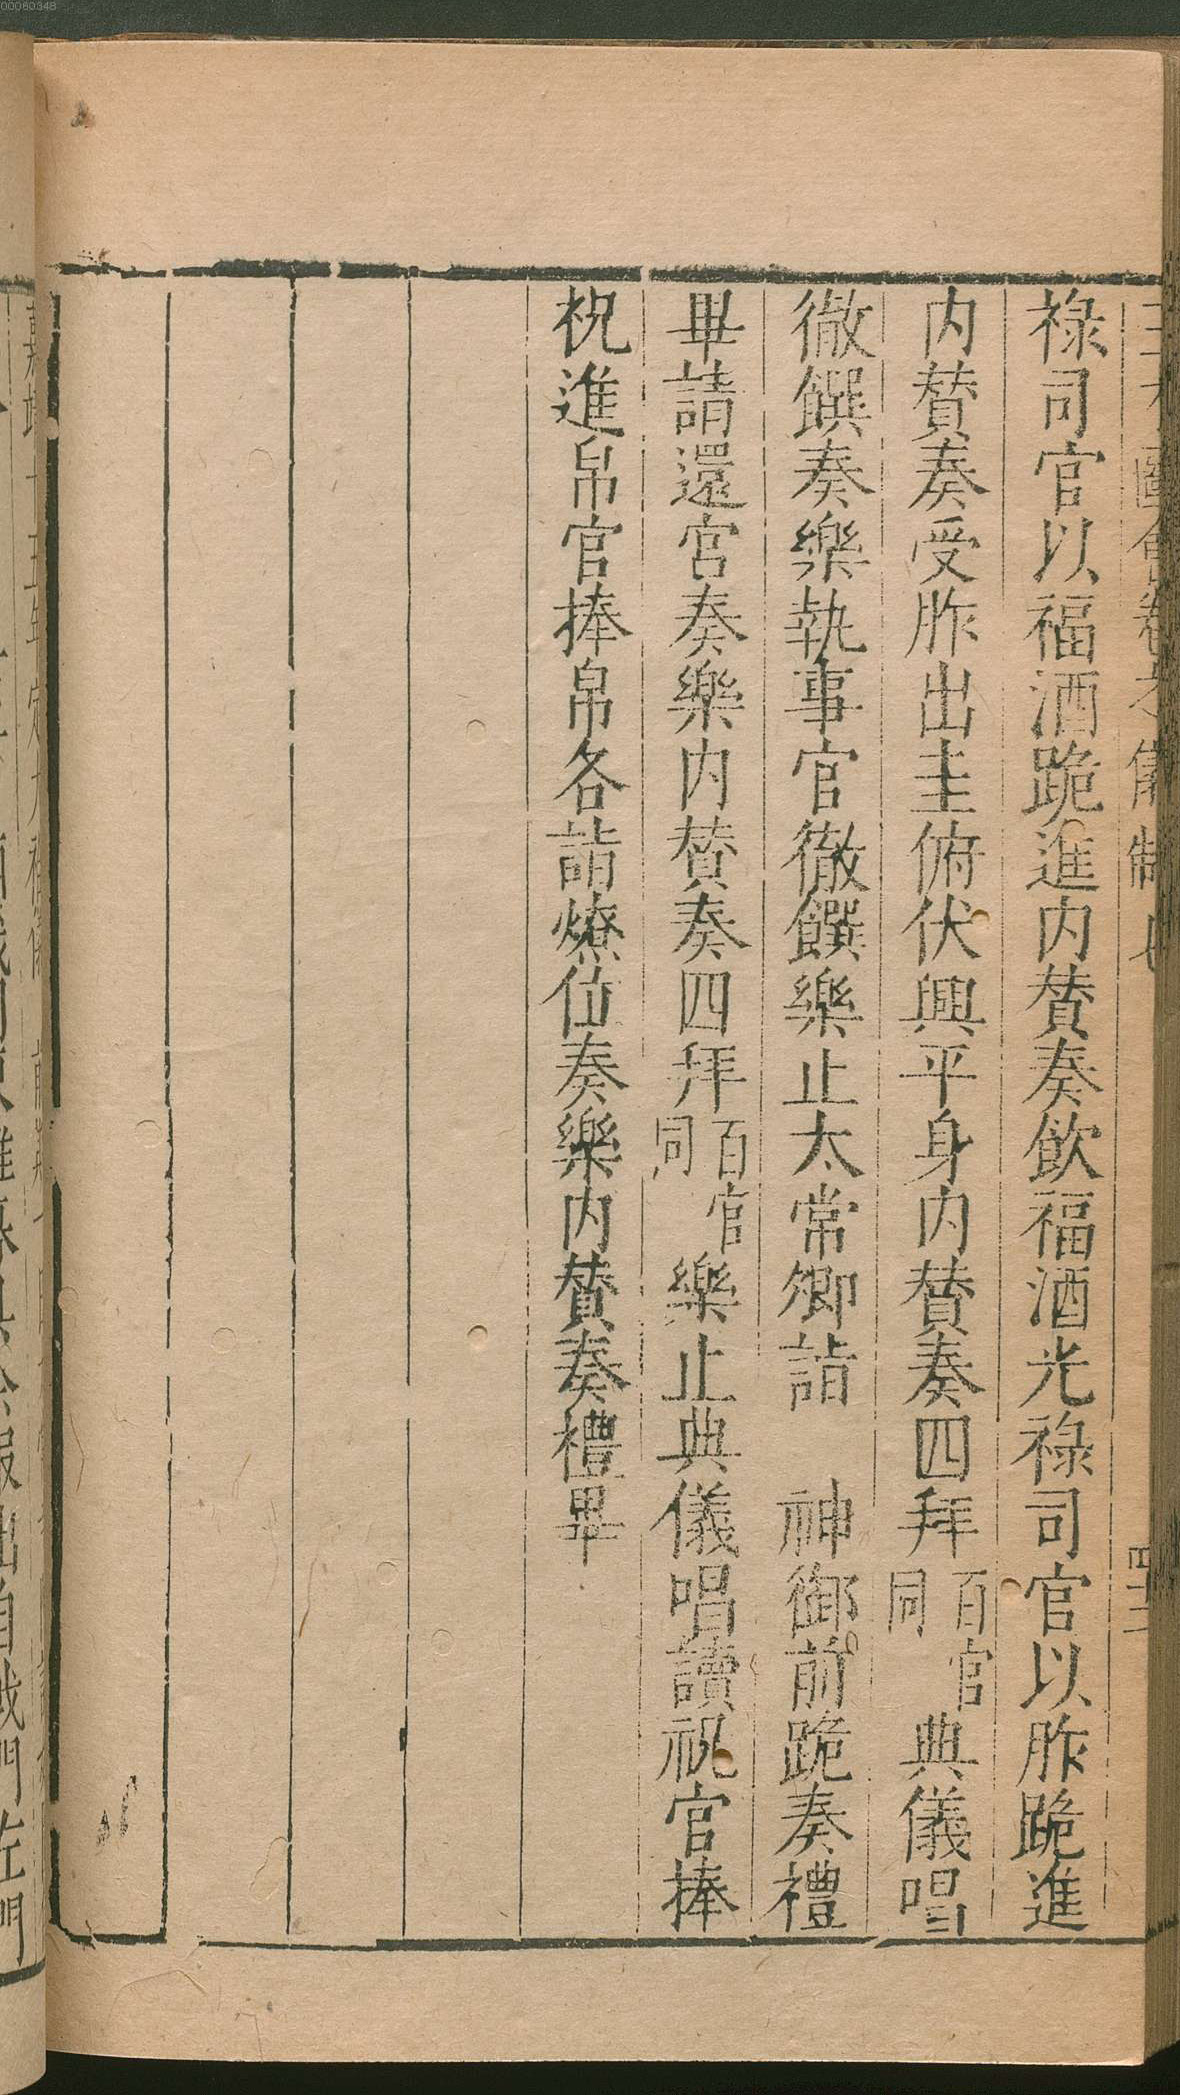 禄司官以福酒跪進内賛奏飲福酒光禄司官以胙跪進
内賛奏受胙出圭俯伏興平身内賛奏四拜百官同典儀唱
徹饌奏樂執事官徹饌樂止太常卿詣　神御前跪奏禮
畢請還宫奏樂内賛奏四拜百官同樂止典儀唱讀祝官捧
祝進帛官捧帛各詣燎位奏樂内賛奏禮畢
00080348